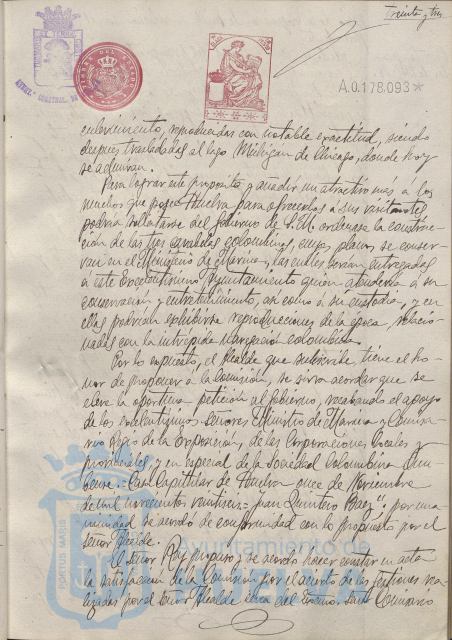 Treinta y tres
A.0.178.093*
descubrimiento, reproducidas con notable exactitud, siendo
después trasladadas al lago Michigan de Chicago, donde hoy
se admiran.
Para lograr este propósito y añadir un atractivo más a los
muchos que posee Huelva para ofrecerlos á sus visitantes,
podría solicitarse del Gobierno de S. M. ordenase la construc-
ción de las tres carabelas colombinas, cuyos planos se conser-
van en el Ministerio de Marina, las cuales serían entregadas
á este Excelentísimo Ayuntamiento quien atendería á su
conservación y entretenimiento, así como á su custodia, y en
ellas podrían exhibirse reproducciones de la época, relacio-
nadas con la intrépida navegación colombina.
Por lo expuesto, el Alcalde que suscribe, tiene el ho-
nor de proponer á la Comisión, se sirva acordar que se
eleve la oportuna petición al Gobierno, recabando el apoyo
de los excelentísimos señores Ministro de Marina y Comisa-
rio Regio de la Exposición, de las Corporaciones locales y
provinciales, y en especial de la Sociedad Colombina Onu-
bense.= Casa Capitular de Huelva once de Noviembre
de mil novecientos veintiseis.= Juan Quintero Baez": por una-
nimidad se acordó de conformidad con lo propuesto por el
señor Alcalde.
El señor Rey propuso y se acordó hacer constar en acta
la satisfacción de la Comisión por el acierto de las gestiones rea-
lizadas por el señor Alcalde cerca del Excmo. señor Comisario
PORTUS MARIS
Ayuntamiento de
HUELVA